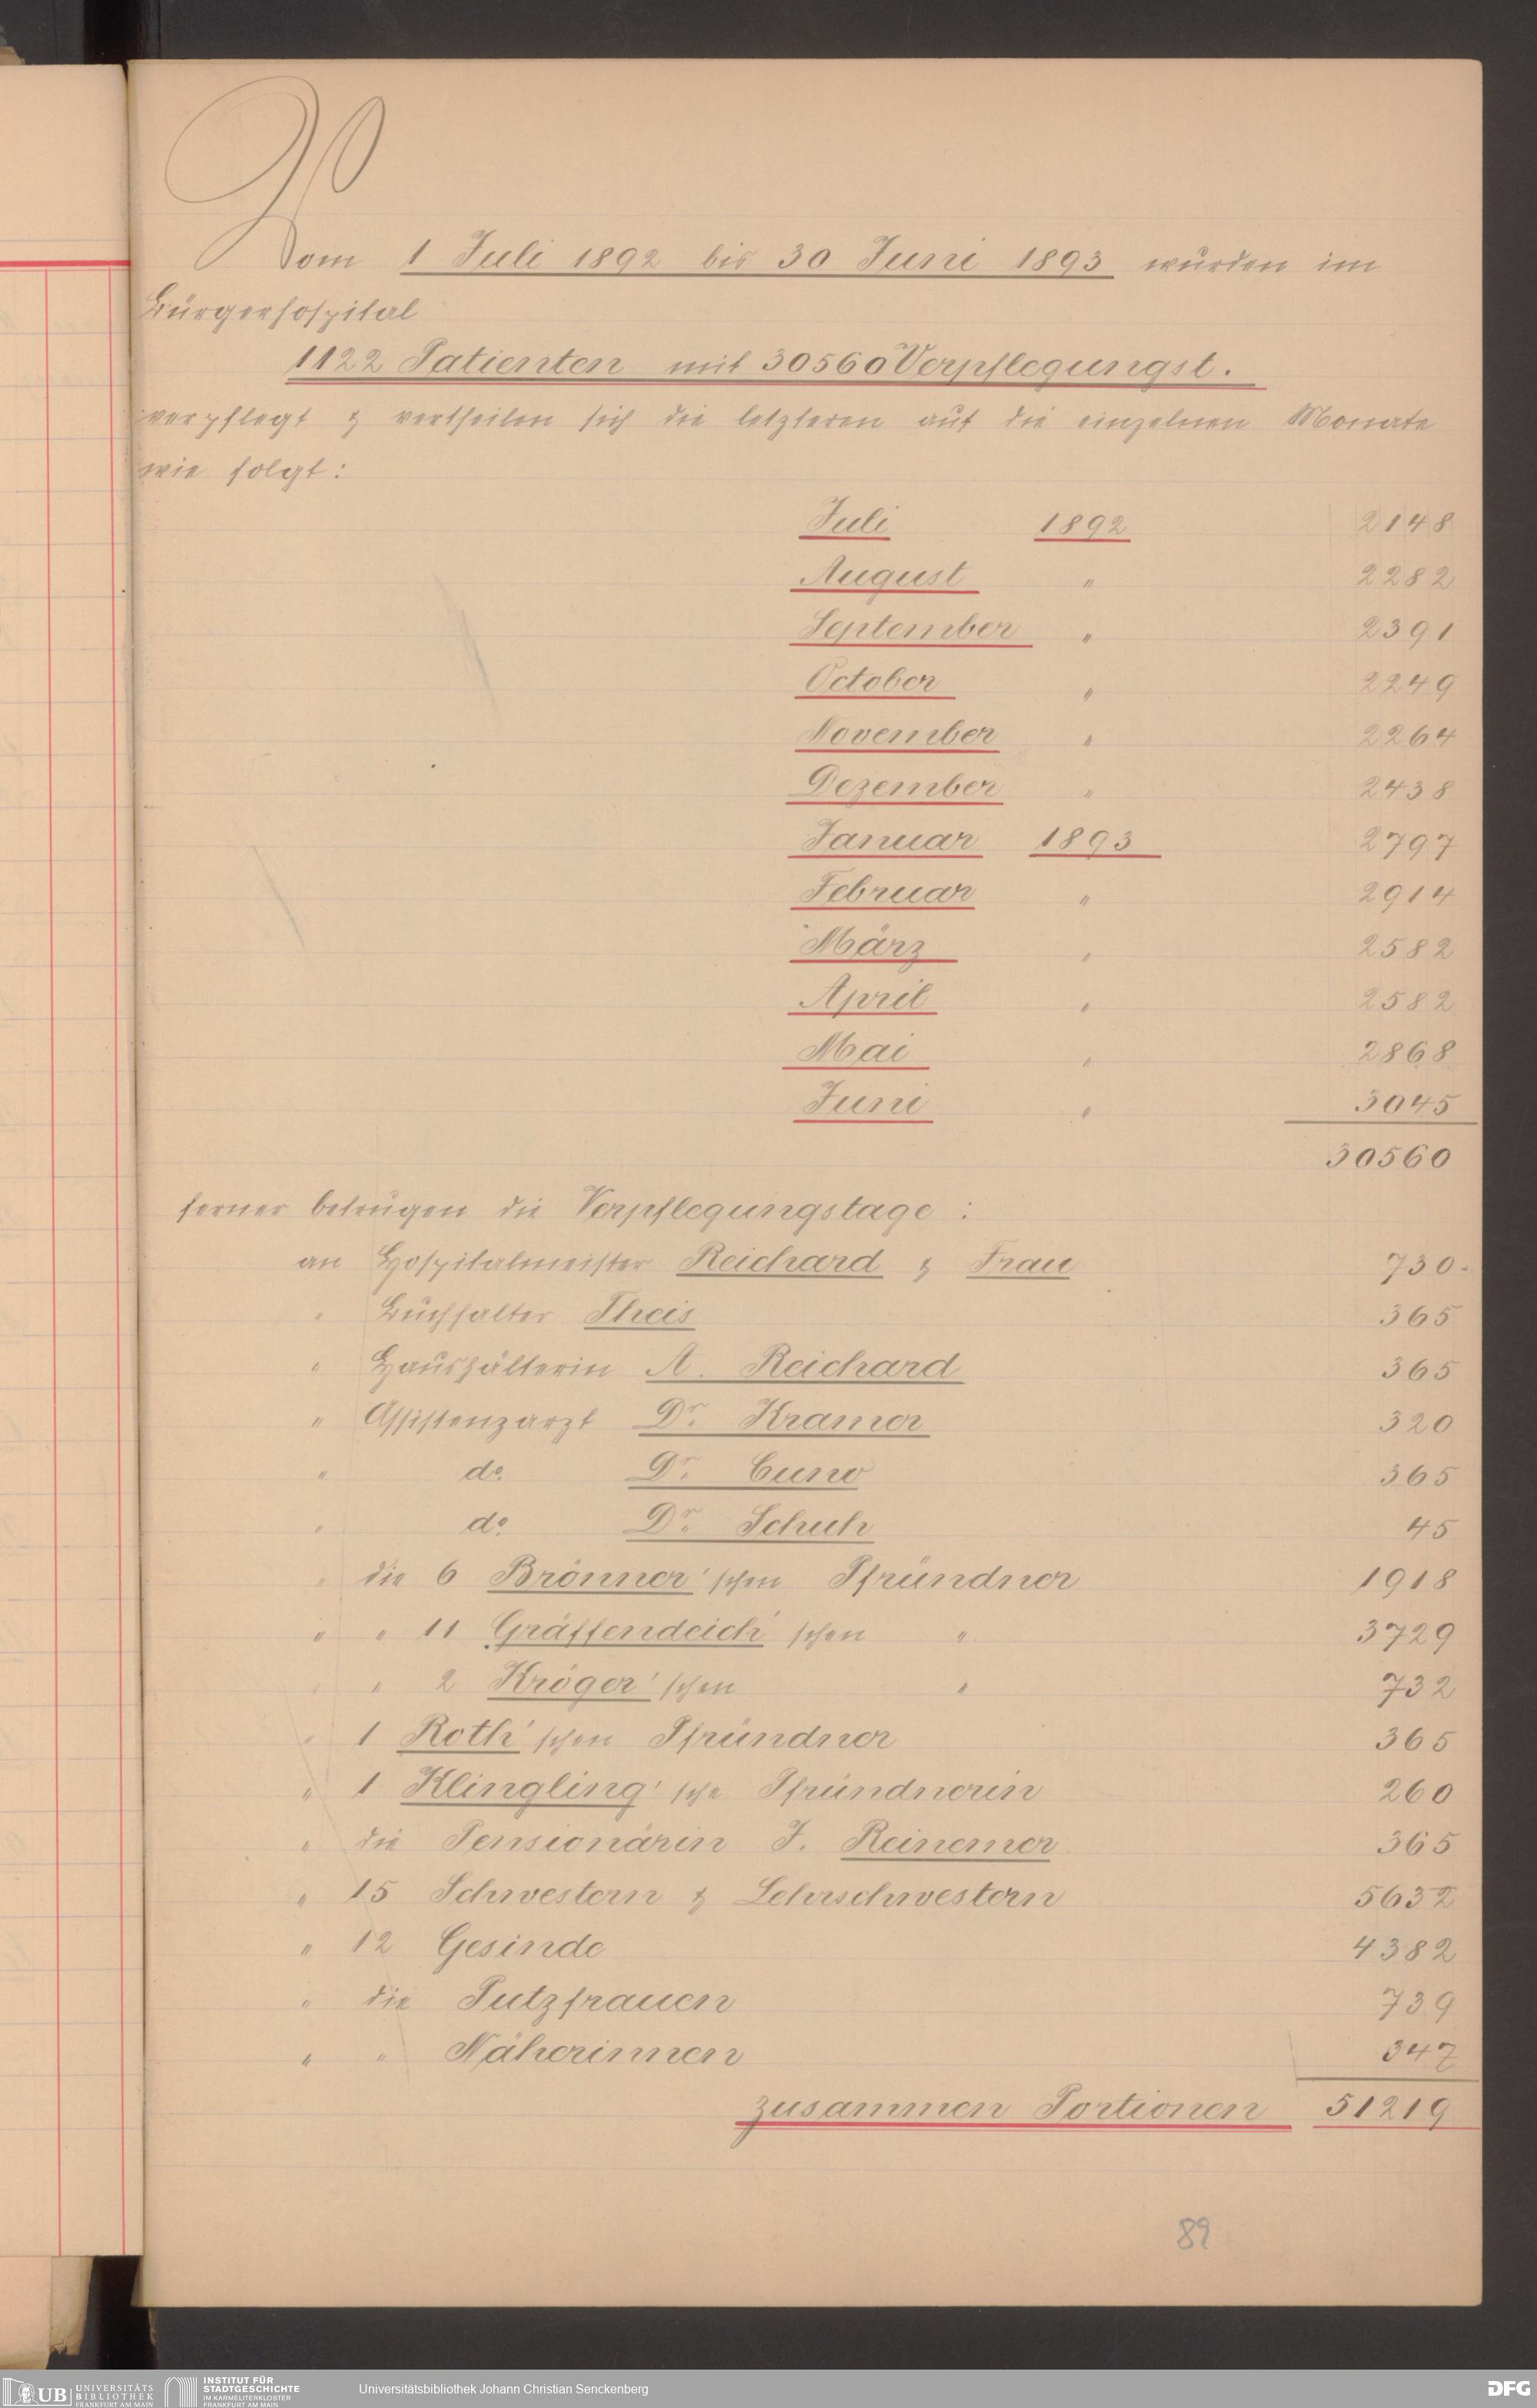 Vom 1 Juli 1892 bis 30 Juni 1893 wurden im
Bürgerhospital
1122 Patienten mit 30560 Verpflegungst.
verpflegt & vertheilen sich die letzteren auf die einzelnen Monate
wie folgt:
Juli 1892 2148
August " 2282
September " 2391
October " 2249
November " 2264
Dezember " 2438
Januar 1893 2797
Februar " 2914
März " 2582
April " 2582
Mai " 2868
Juni " 3045
30560
ferner betrugen die Verpflegungstage:
an Hospitalmeister Reichard & Frau 730.
" Buchhalter Theis 365
" Haushälterin A. Reichard 365
" Assistenzarzt Dr. Kramer 320
" do. Dr. Cuno 365
" do. Dr. Schuh 45
" die 6 Brönner'schen Pfründner 1918
" " 11 Gräffendeich'schen " 3729
" " 2 Kröger'schen " 732
" 1 Roth'schen Pfründner 365
" 1 Klingling'sche Pfründnerin 260
" die Pensionärin J. Reinemer 365
" 15 Schwestern & Lehrschwestern 5632
" 12 Gesinde 4382
" die Putzfrauen 739
" " Näherinnen 347
zusammen Portionen 51219
89
UB UNIVERSITÄTS BIBLIOTHEK FRANKFURT AM MAIN
INSTITUT FÜR STADTGESCHICHTE IM KARMELITERKLOSTER FRANKFURT AM MAIN
Universitätsbibliothek Johann Christian Senckenberg
DFG